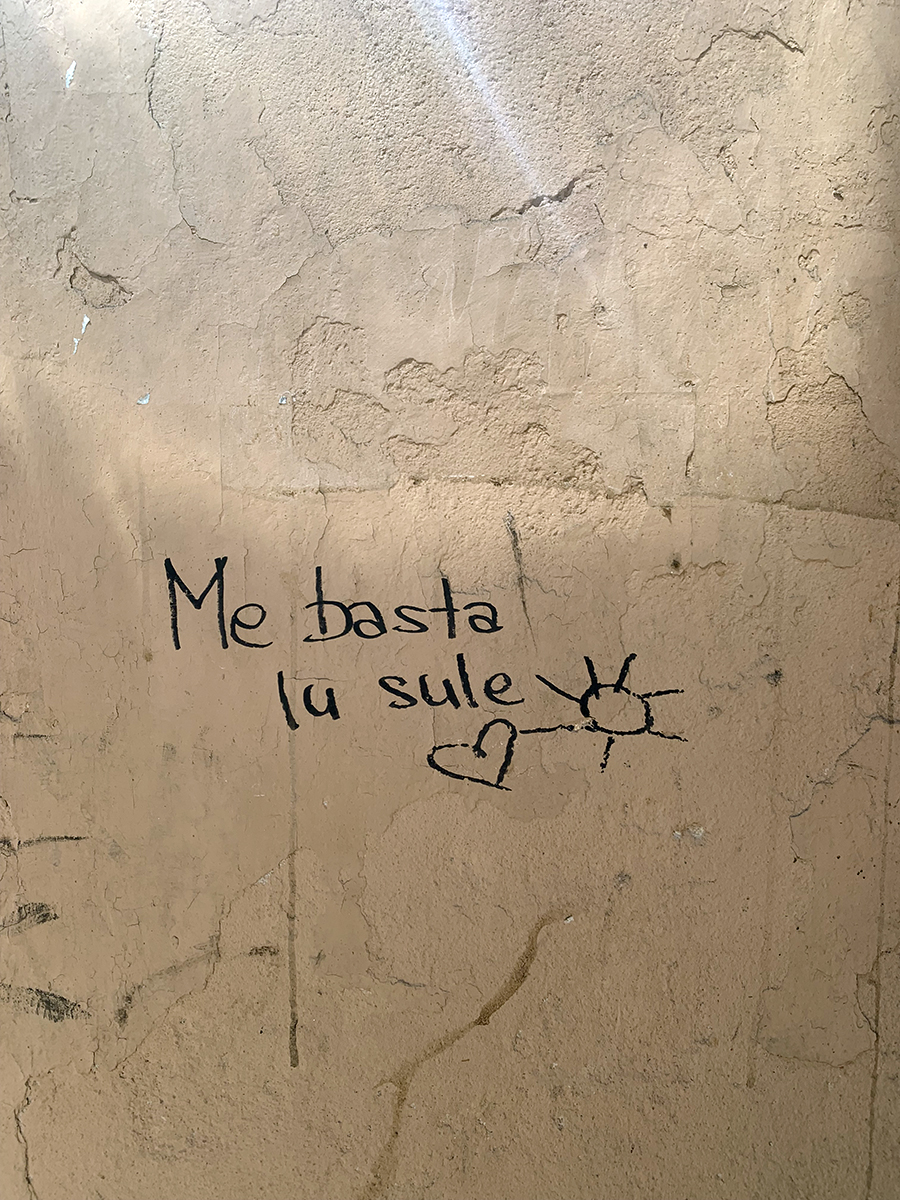 Me basta
lu sule